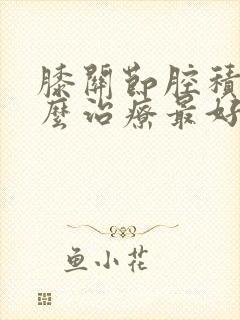 膝關節腔積
麼治療最好
鱼小花